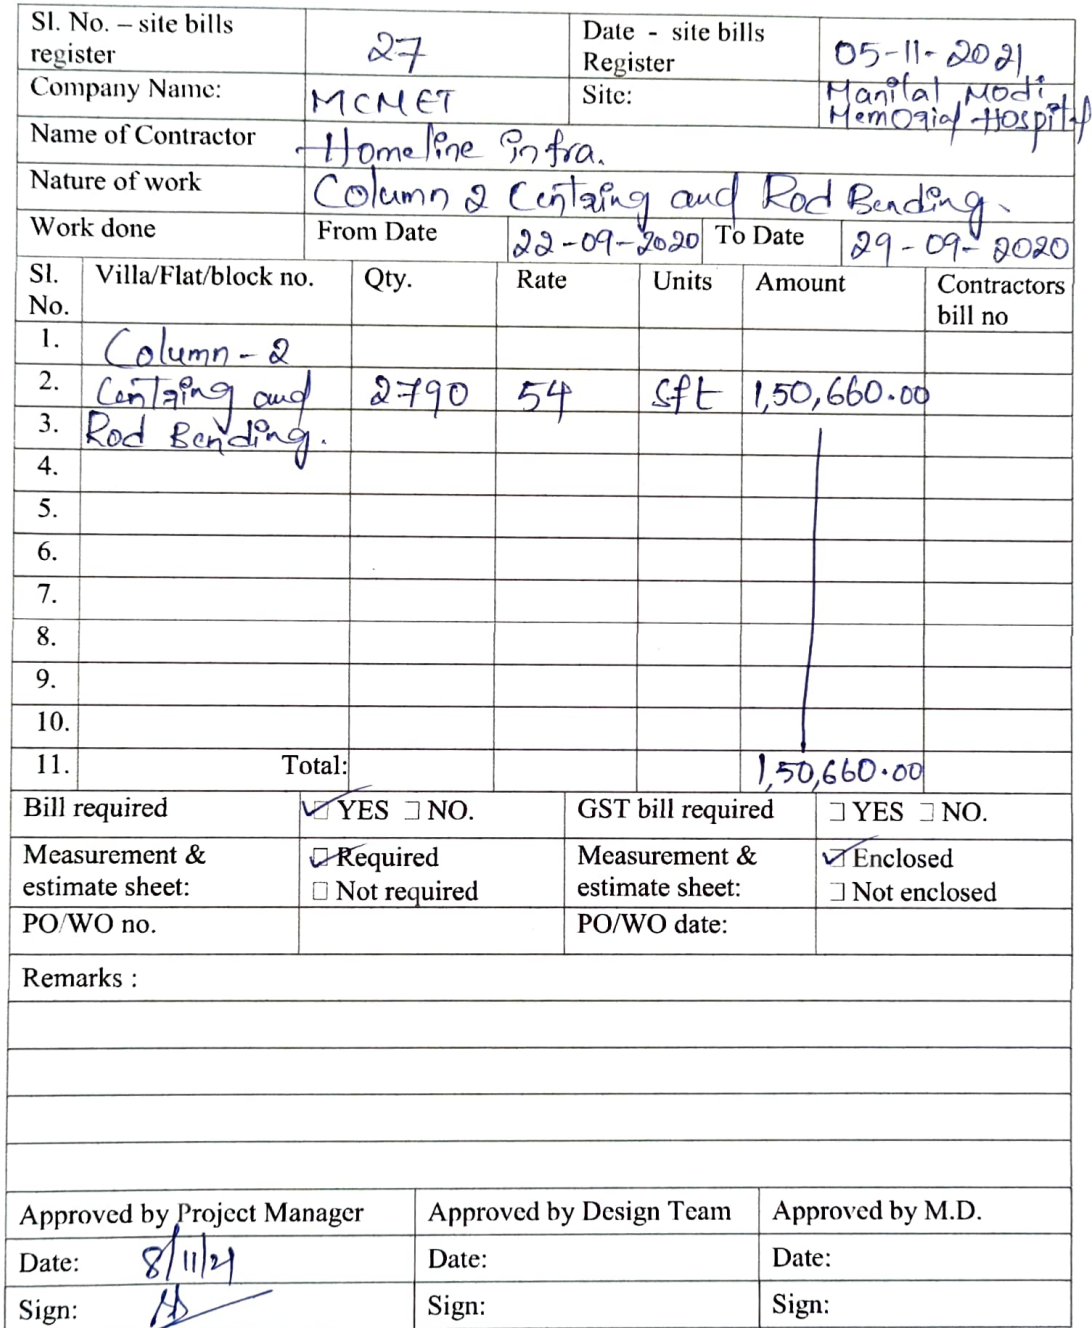 Sl. No. – site bills register 27 Date - site bills Register 05-11-2021
Company Name: MCMET Site: Manilal Modi Memorial Hospital
Name of Contractor Homeline infra.
Nature of work Column 2 Centring and Rod Bending.
Work done From Date 22-09-2020 To Date 29-09-2020
Sl. No. Villa/Flat/block no. Qty. Rate Units Amount Contractors bill no
1. Column-2
2. Centring and 2790 54 sft 1,50,660.00
3. Rod Bending.
4.
5.
6.
7.
8.
9.
10.
11. Total: 1,50,660.00
Bill required YES NO. GST bill required YES NO.
Measurement & estimate sheet: Required Not required Measurement & estimate sheet: Enclosed Not enclosed
PO/WO no. PO/WO date:
Remarks :
Approved by Project Manager Approved by Design Team Approved by M.D.
Date: 8/11/21 Date: Date:
Sign: Sign: Sign: